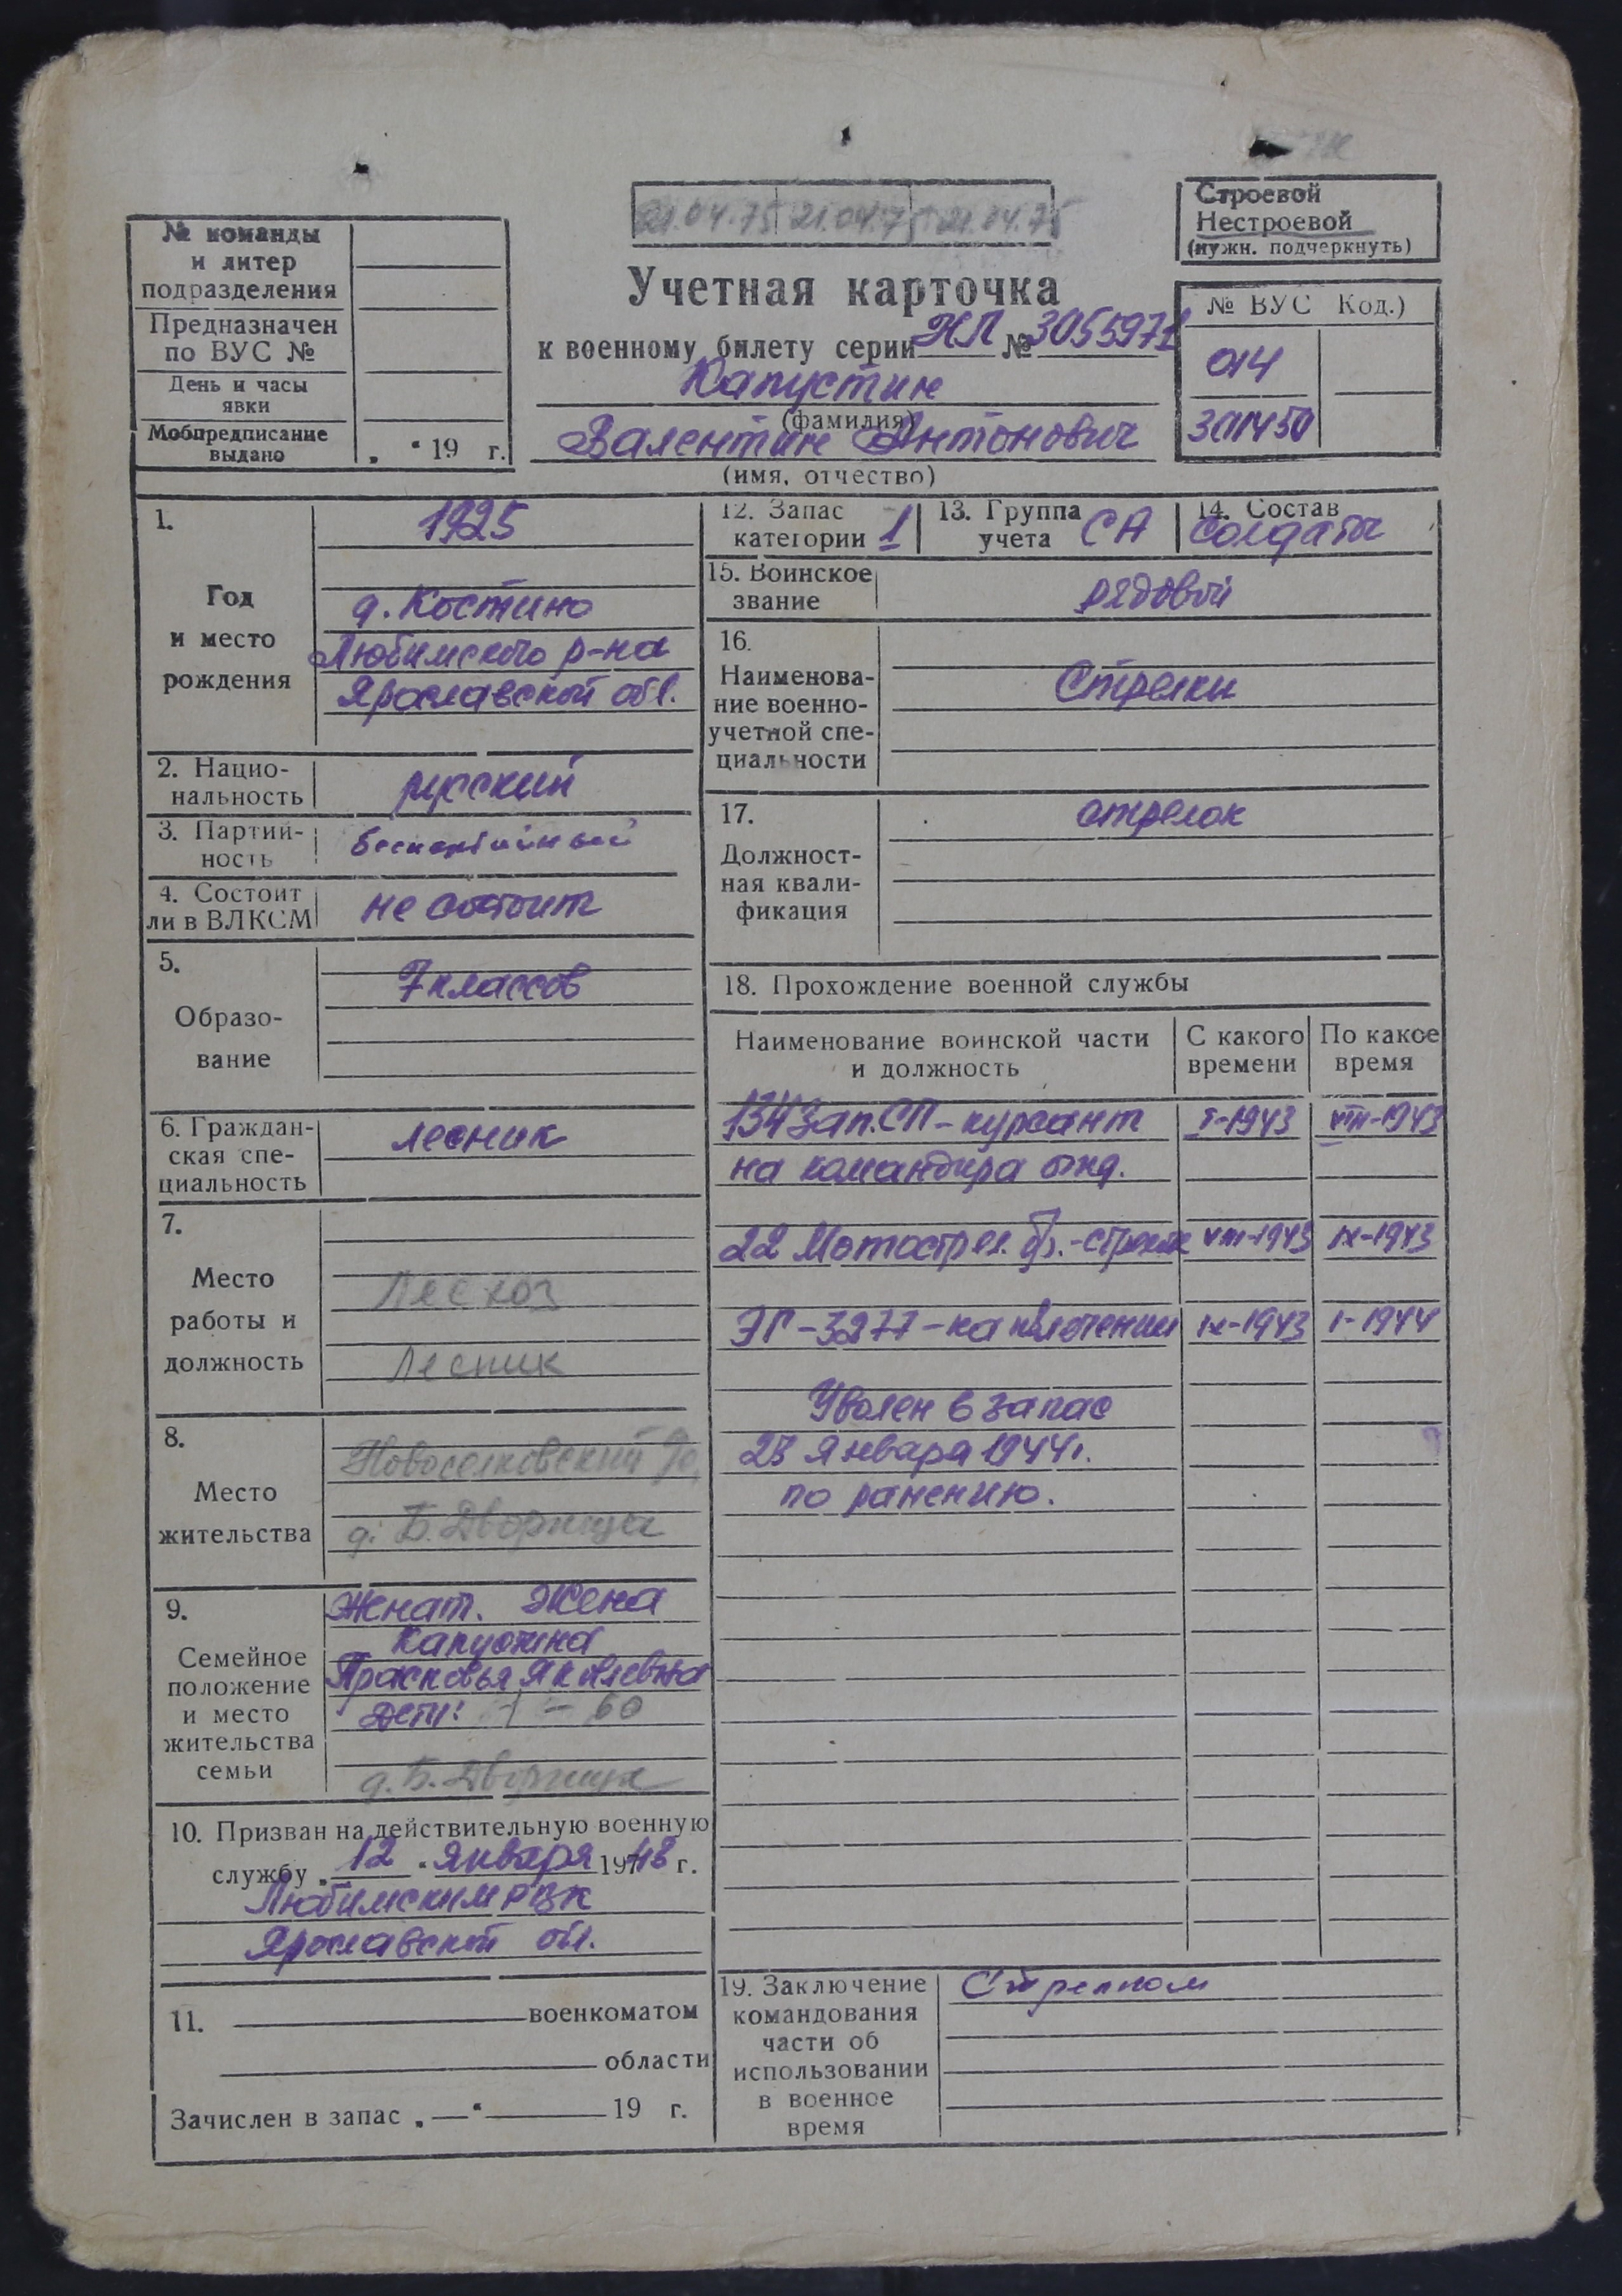 21.04.75 21.04.75 21.04.75
Строевой
Нестроевой
(нужн. подчеркнуть)
№ команды
и литер
подразделения
Предназначен
по ВУС №
День и часы
явки
Мобпредписание
выдано „ “ 19 г.
Учетная карточка
к военному билету серии НЛ № 3055971
Капустин
(фамилия)
Валентин Антонович
(имя, отчество)
№ ВУС Код.)
014
301450
1.
Год
и место
рождения
1925
д. Костино
Любимского р-на
Ярославской обл.
2. Нацио-
нальность
русский
3. Партий-
ность
беспартийный
4. Состоит
ли в ВЛКСМ
не состоит
5.
Образо-
вание
7 классов
6. Граждан-
ская спе-
циальность
лесник
7.
Место
работы и
должность
Лесхоз
Лесник
8.
Место
жительства
Новоселковский
д. Б. Дворища
9.
Семейное
положение
и место
жительства
семьи
Женат. Жена
Капустина
Прасковья Яковлевна
Дети: 1 – 60
д. Б. Дворища
10. Призван на действительную военную
службу „ 12 “ января 1943 г.
Любимским РВК
Ярославской обл.
11. военкоматом
области
Зачислен в запас „ — “ 19 г.
12. Запас
категории 1
13. Группа
учета СА
14. Состав
солдаты
15. Воинское
звание
рядовой
16.
Наименова-
ние военно-
учетной спе-
циальности
Стрелки
17.
Должност-
ная квали-
фикация
стрелок
18. Прохождение военной службы
Наименование воинской части
и должность
С какого
времени
По какое
время
134 зап. СП – курсант I-1943 VIII-1943
на командира отд.
22 Мотострел. бр. – стрелок VIII-1943 IX-1943
ЭГ – 3277 – на излечении IX-1943 I-1944
Уволен в запас
23 января 1944 г.
по ранению.
19. Заключение
командования
части об
использовании
в военное
время
Стрелком